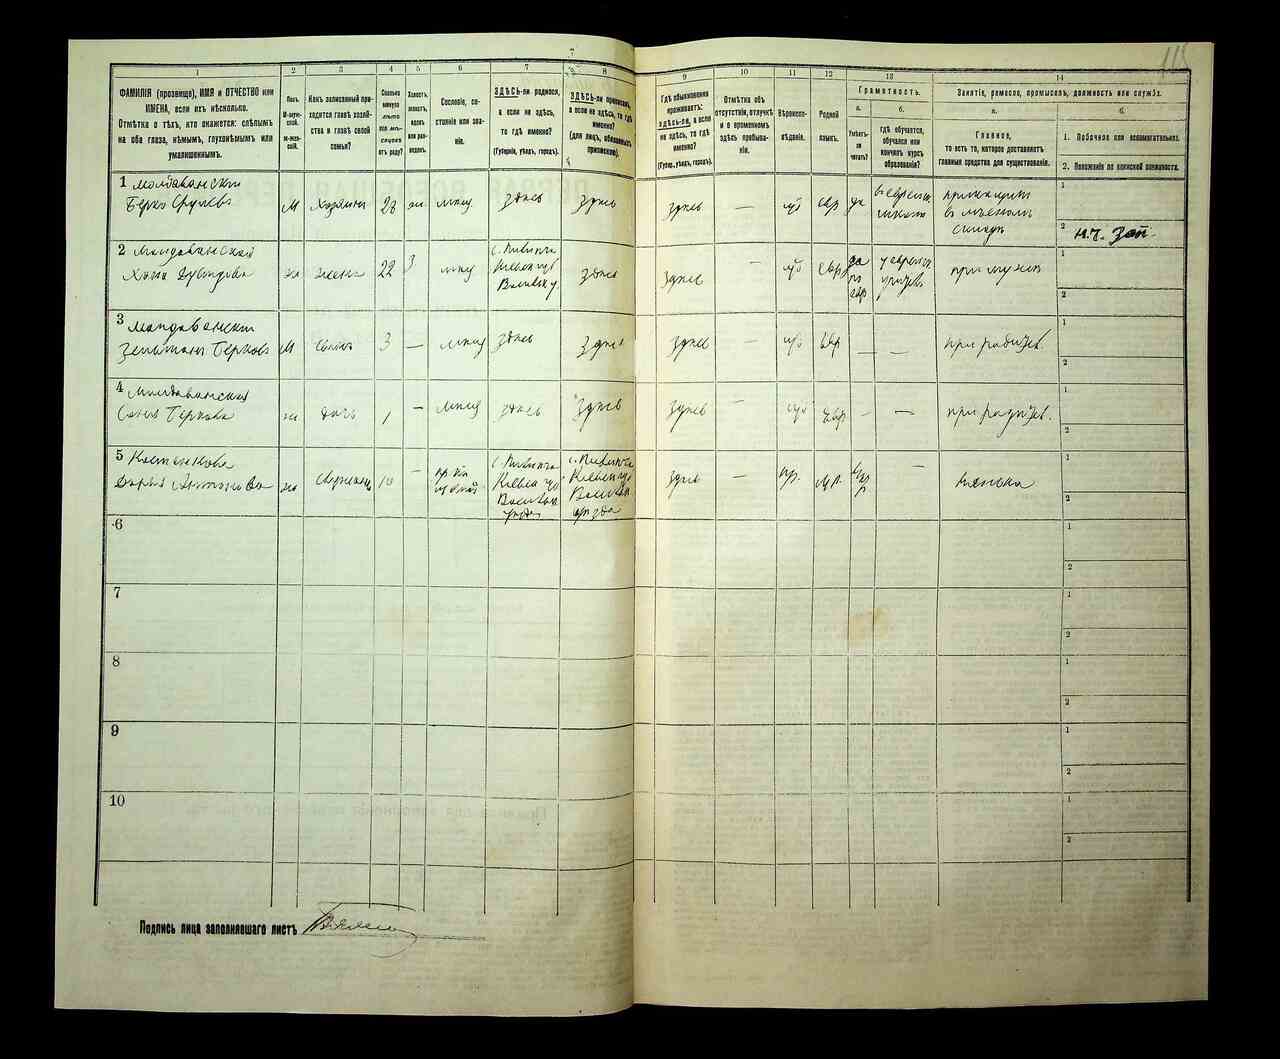 7
115
1
ФАМИЛІЯ (прозвище), ИМЯ и ОТЧЕСТВО или
ИМЕНА, если ихъ нѣсколько.
Отмѣтка о тѣхъ, кто окажется: слѣпымъ
на оба глаза, нѣмымъ, глухонѣмымъ или
умалишеннымъ.
2
Полъ.
М-муж-
ской.
ж-жен-
скій.
3
Какъ записанный при-
ходится главѣ хозяй-
ства и главѣ своей
семьи?
4
Сколько
минуло
лѣтъ
или мѣ-
сяцевъ
отъ роду?
5
Холостъ,
женатъ,
вдовъ
или раз-
веденъ.
6
Сословіе, со-
стояніе или зва-
ніе.
7
ЗДѢСЬ-ли родился,
а если не здѣсь,
то гдѣ именно?
(Губернія, уѣздъ, городъ).
8
ЗДѢСЬ-ли приписанъ,
а если не здѣсь, то гдѣ
именно?
(для лицъ, обязанныхъ
припискою).
9
Гдѣ обыкновенно
проживаетъ:
здѣсь-ли, а если
не здѣсь, то гдѣ
именно?
(Губер., уѣздъ, городъ).
10
Отмѣтка объ
отсутствіи, отлучкѣ
и о временномъ
здѣсь пребыва-
ніи.
11
Вѣроиспо-
вѣданіе.
12
Родной
языкъ.
13
Грамотность.
а.
Умѣетъ-
ли
читать?
б.
гдѣ обучается,
обучался или
кончилъ курсъ
образованія?
14
Занятіе, ремесло, промыселъ, должность или служба.
а.
Главное,
то есть то, которое доставляетъ
главныя средства для существованія.
б.
1. Побочное или вспомогательное.
2. Положеніе по воинской повинности.
1 Молдаванскій
Берко Срулевъ
м
Хозяинъ
28
ж
мѣщ
здѣсь
здѣсь
здѣсь
—
іуд
евр
да
въ еврейск
приказчикъ
въ
складѣ
1
2 н.ч. зап.
2 Молдаванская
Давидова
ж
жена
22
з
мѣщ
Кіевск губ
Васильк у.
здѣсь
здѣсь
—
іуд
евр
да
по
евр
у еврейск
при мужѣ
1
2
3 Молдаванскій
Зельманъ Берковъ
м
сынъ
3
—
мѣщ
здѣсь
здѣсь
здѣсь
—
іуд
евр
—
—
при родител.
1
2
4 Молдаванская
Берковна
ж
дочь
1
—
мѣщ
здѣсь
здѣсь
здѣсь
—
іуд
евр
—
—
при родител.
1
2
5
Дарья Антонова
ж
10
—
Кіевск губ
Васильк
уѣзда
Кіевск губ
Васильк
уѣзда
здѣсь
—
пр.
м.р.
—
нянька
1
2
6
1
2
7
1
2
8
1
2
9
1
2
10
1
2
Подпись лица заполнявшаго листъ